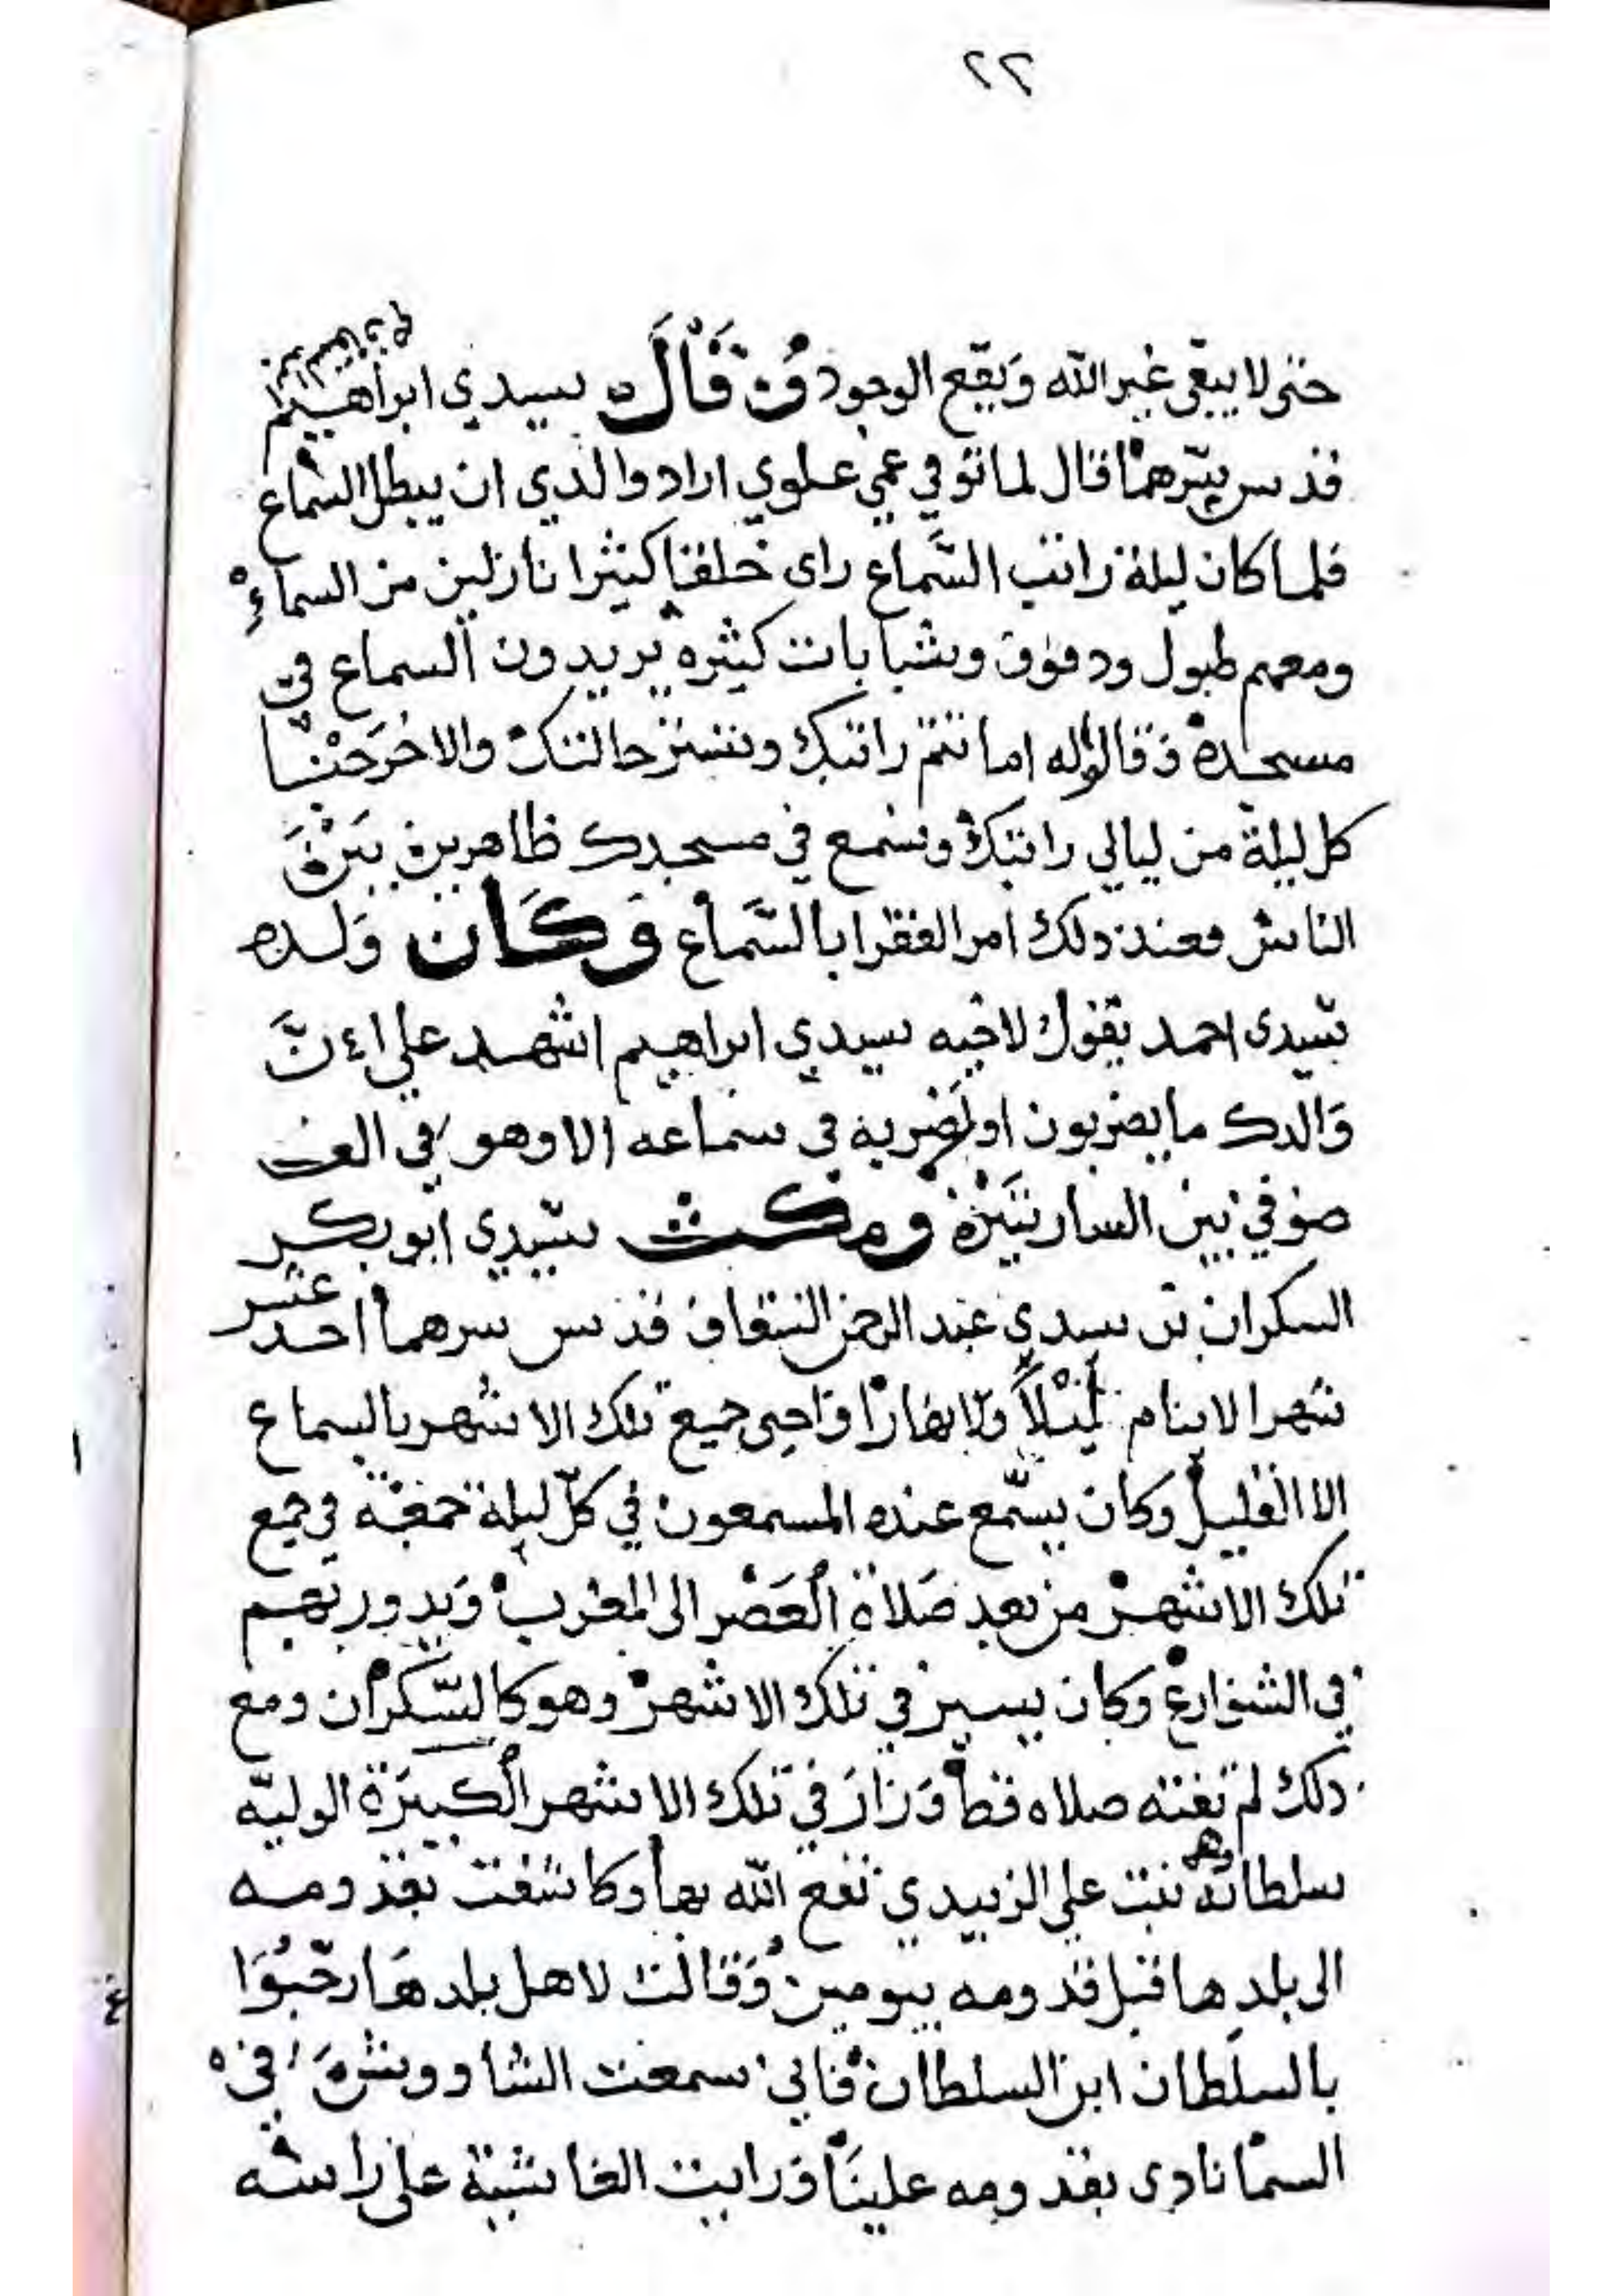 ٢٢
حتى لا يبقى غير الله ويقع الوجود وقال سيدي ابراهيم
قدس سرهما قال لما توفي عمي علوي اراد والدي ان يبطل السماع
فلما كان ليلة راتب السماع راى خلقا كثيرا نازلين من السماء
ومعهم طبول ودفوف وشبابات كثيره يريدون السماع في
مسجده وقالوا له اما تتم راتبك وتستر حالتك والا خرجنا
كل ليلة من ليالي راتبك ونسمع في مسجدك ظاهرين
الناس فعند ذلك امر الفقرا بالسماع وكان ولده
سيدي احمد يقول لاخيه سيدي ابراهيم اشهد علي ان
والدك ما يضربون اول ضربه في سماعه الا وهو في الف
صوفي بين الساريتين ومكث سيدي ابو بكر
السكران بن سيدي عبد الرحمن السقاف قدس سرهما احد عشر
شهرا لا ينام ليلا ولا نهارا واحيى جميع تلك الاشهر بالسماع
الا القليل وكان يسمع عنده المسمعون في كل ليلة جمعة في جميع
تلك الاشهر من بعد صلاة العصر الى المغرب ويدور بهم
في الشوارع وكان يسير في تلك الاشهر وهو كالسكران ومع
ذلك لم تفته صلاه قط وزار في تلك الاشهر الكبيرة الوليه
سلطانه بنت علي الزبيدي نفع الله بها وكاشفت بقدومه
الى بلدها قبل قدومه بيومين وقالت لاهل بلدها رحبوا
بالسلطان ابن السلطان فاني سمعت الشاووش في
السما نادى بقدومه علينا ورايت الغاشية على راسه